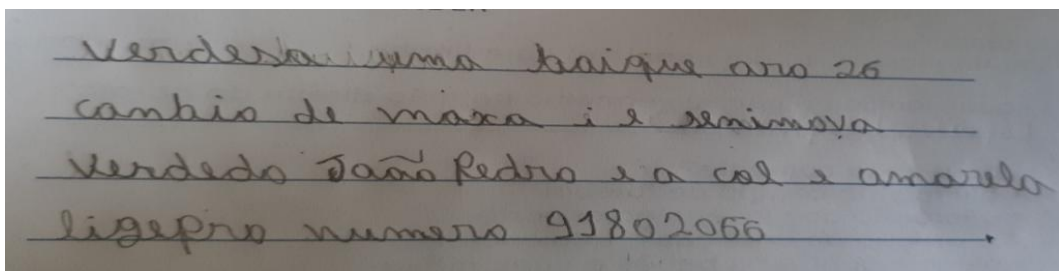 Verdese uma baique aro 26
canbio de maxa i e senimova
Verdedo João Pedro e a col e amarelo
ligepro numero 91802066.